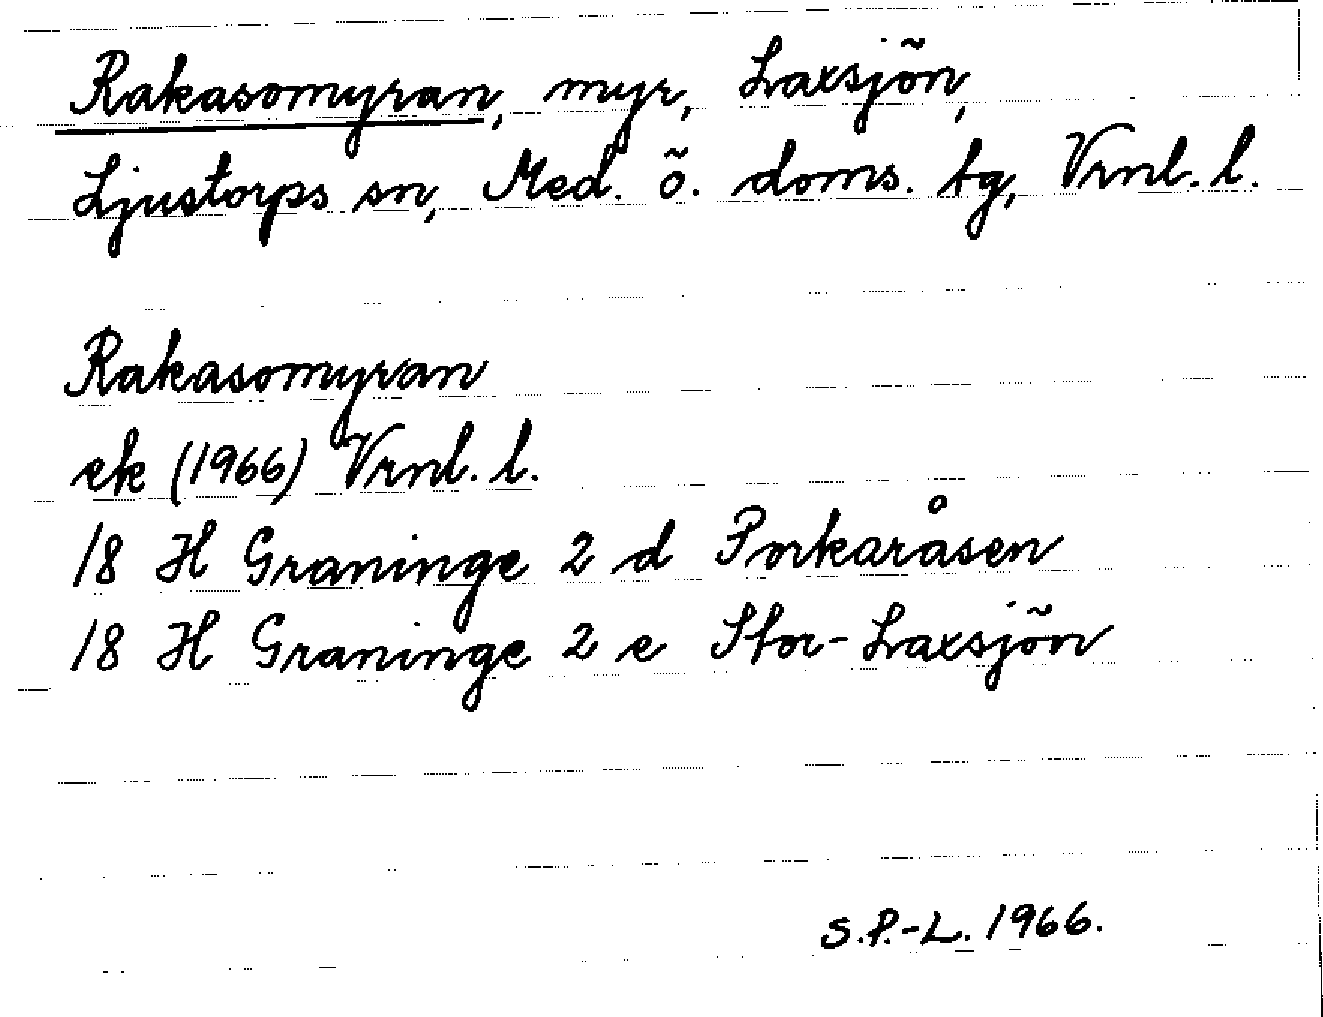 Rakasomyran, myr, Laxsjön,
Ljustorps sn, Med. ö. doms. tg, Vrnl. l.
Rakasomyran
ek (1966) Vrnl. l.
18 H Graninge 2 d Porkaråsen
18 H Graninge 2 e Stor-Laxsjön
S.P.-L. 1966.